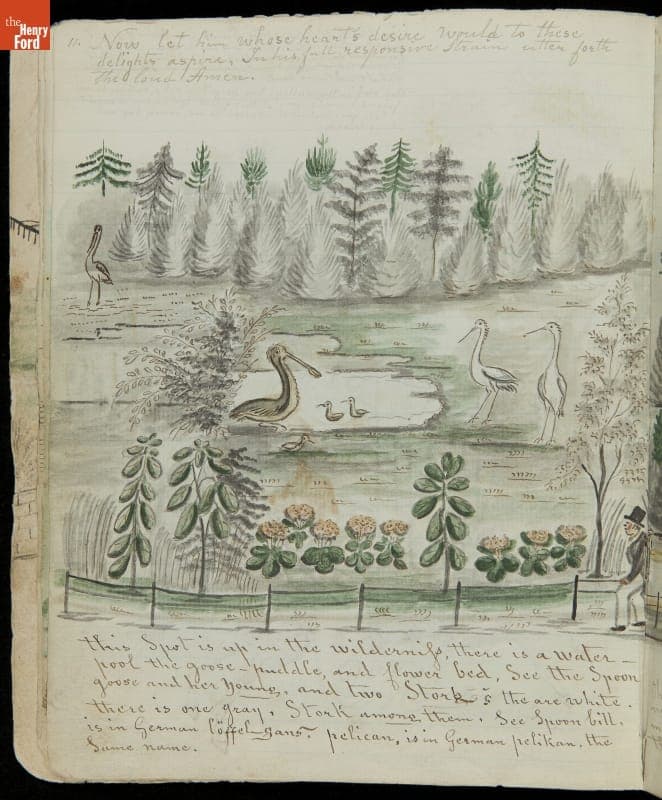 the
Henry
Ford
11. Now let him whose heart's desire would to these
delights aspire, In his full responsive strain utter forth
the loud Amen.
this Spot is up in the wilderness, there is a water-
pool the goose-puddle, and flower bed, See the Spoon
goose and her Young, and two Stork s the are white.
there is one gray, Stork among them, See Spoon bill,
is in German löffel-gans, pelican, is in German pelikan, the
Same name.